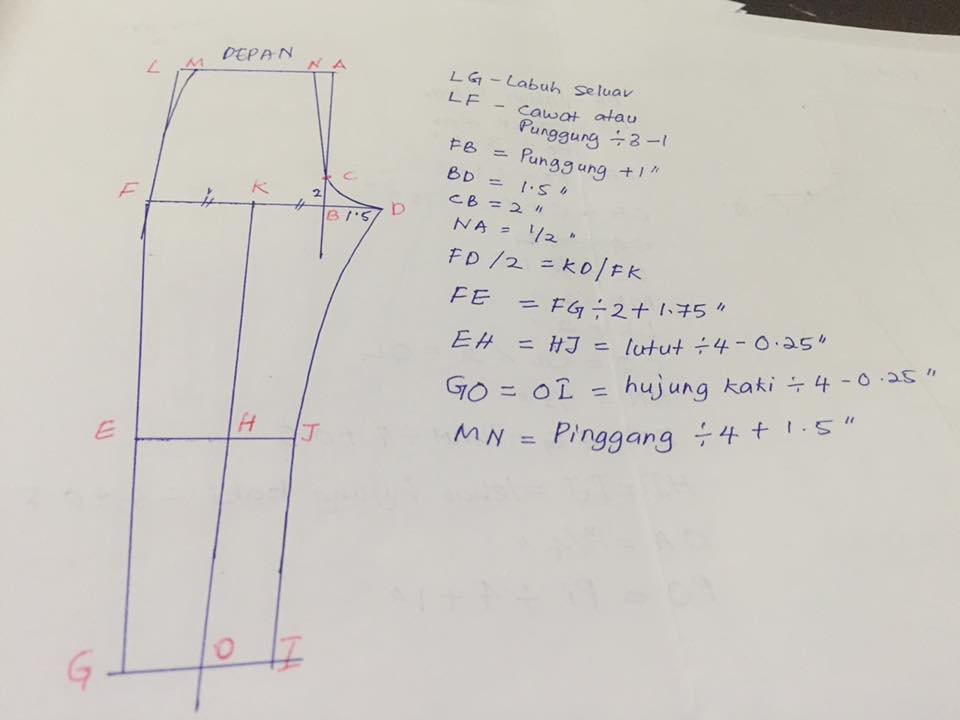 DEPAN
L M N A
C
F K 2
B 1.5 D
E H J
G O I
LG - Labuh Seluar
LF - Cawat atau
Punggung ÷ 3 - 1
FB = Punggung + 1"
BD = 1.5"
CB = 2"
NA = 1/2"
FD/2 = KD/FK
FE = FG ÷ 2 + 1.75"
EH = HJ = lutut ÷ 4 - 0.25"
GO = OI = hujung kaki ÷ 4 - 0.25"
MN = Pinggang ÷ 4 + 1.5"